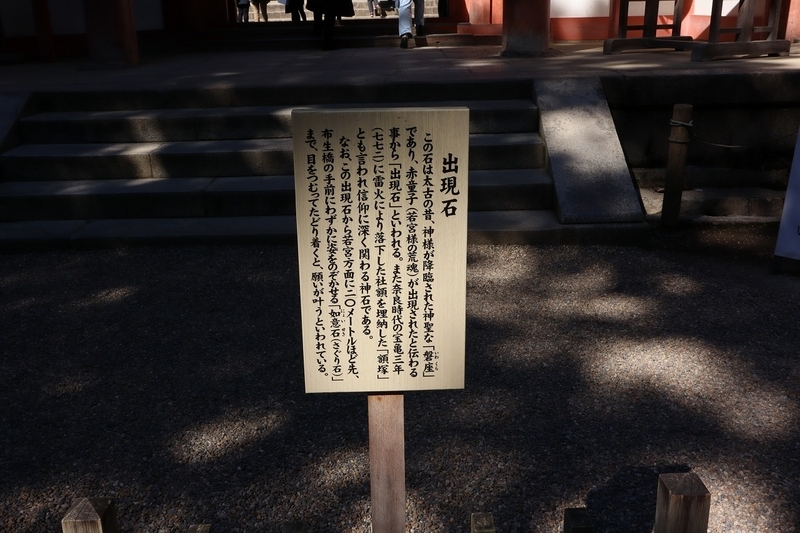 出現石
この石は太古の昔、神様が降臨された神聖な「磐座」
であり、赤童子（若宮様の荒魂）が出現されたと伝わる
事から「出現石」といわれる。また奈良時代の宝亀三年
（七七二）に雷火により落下した社額を埋納した「額塚」
とも言われ信仰に深く関わる神石である。
なお、この出現石から若宮方面に二〇メートルほど先、
布生橋の手前にわずかに姿をのぞかせる「如意石（さぐり石）」
まで、目をつむってたどり着くと、願いが叶うといわれている。